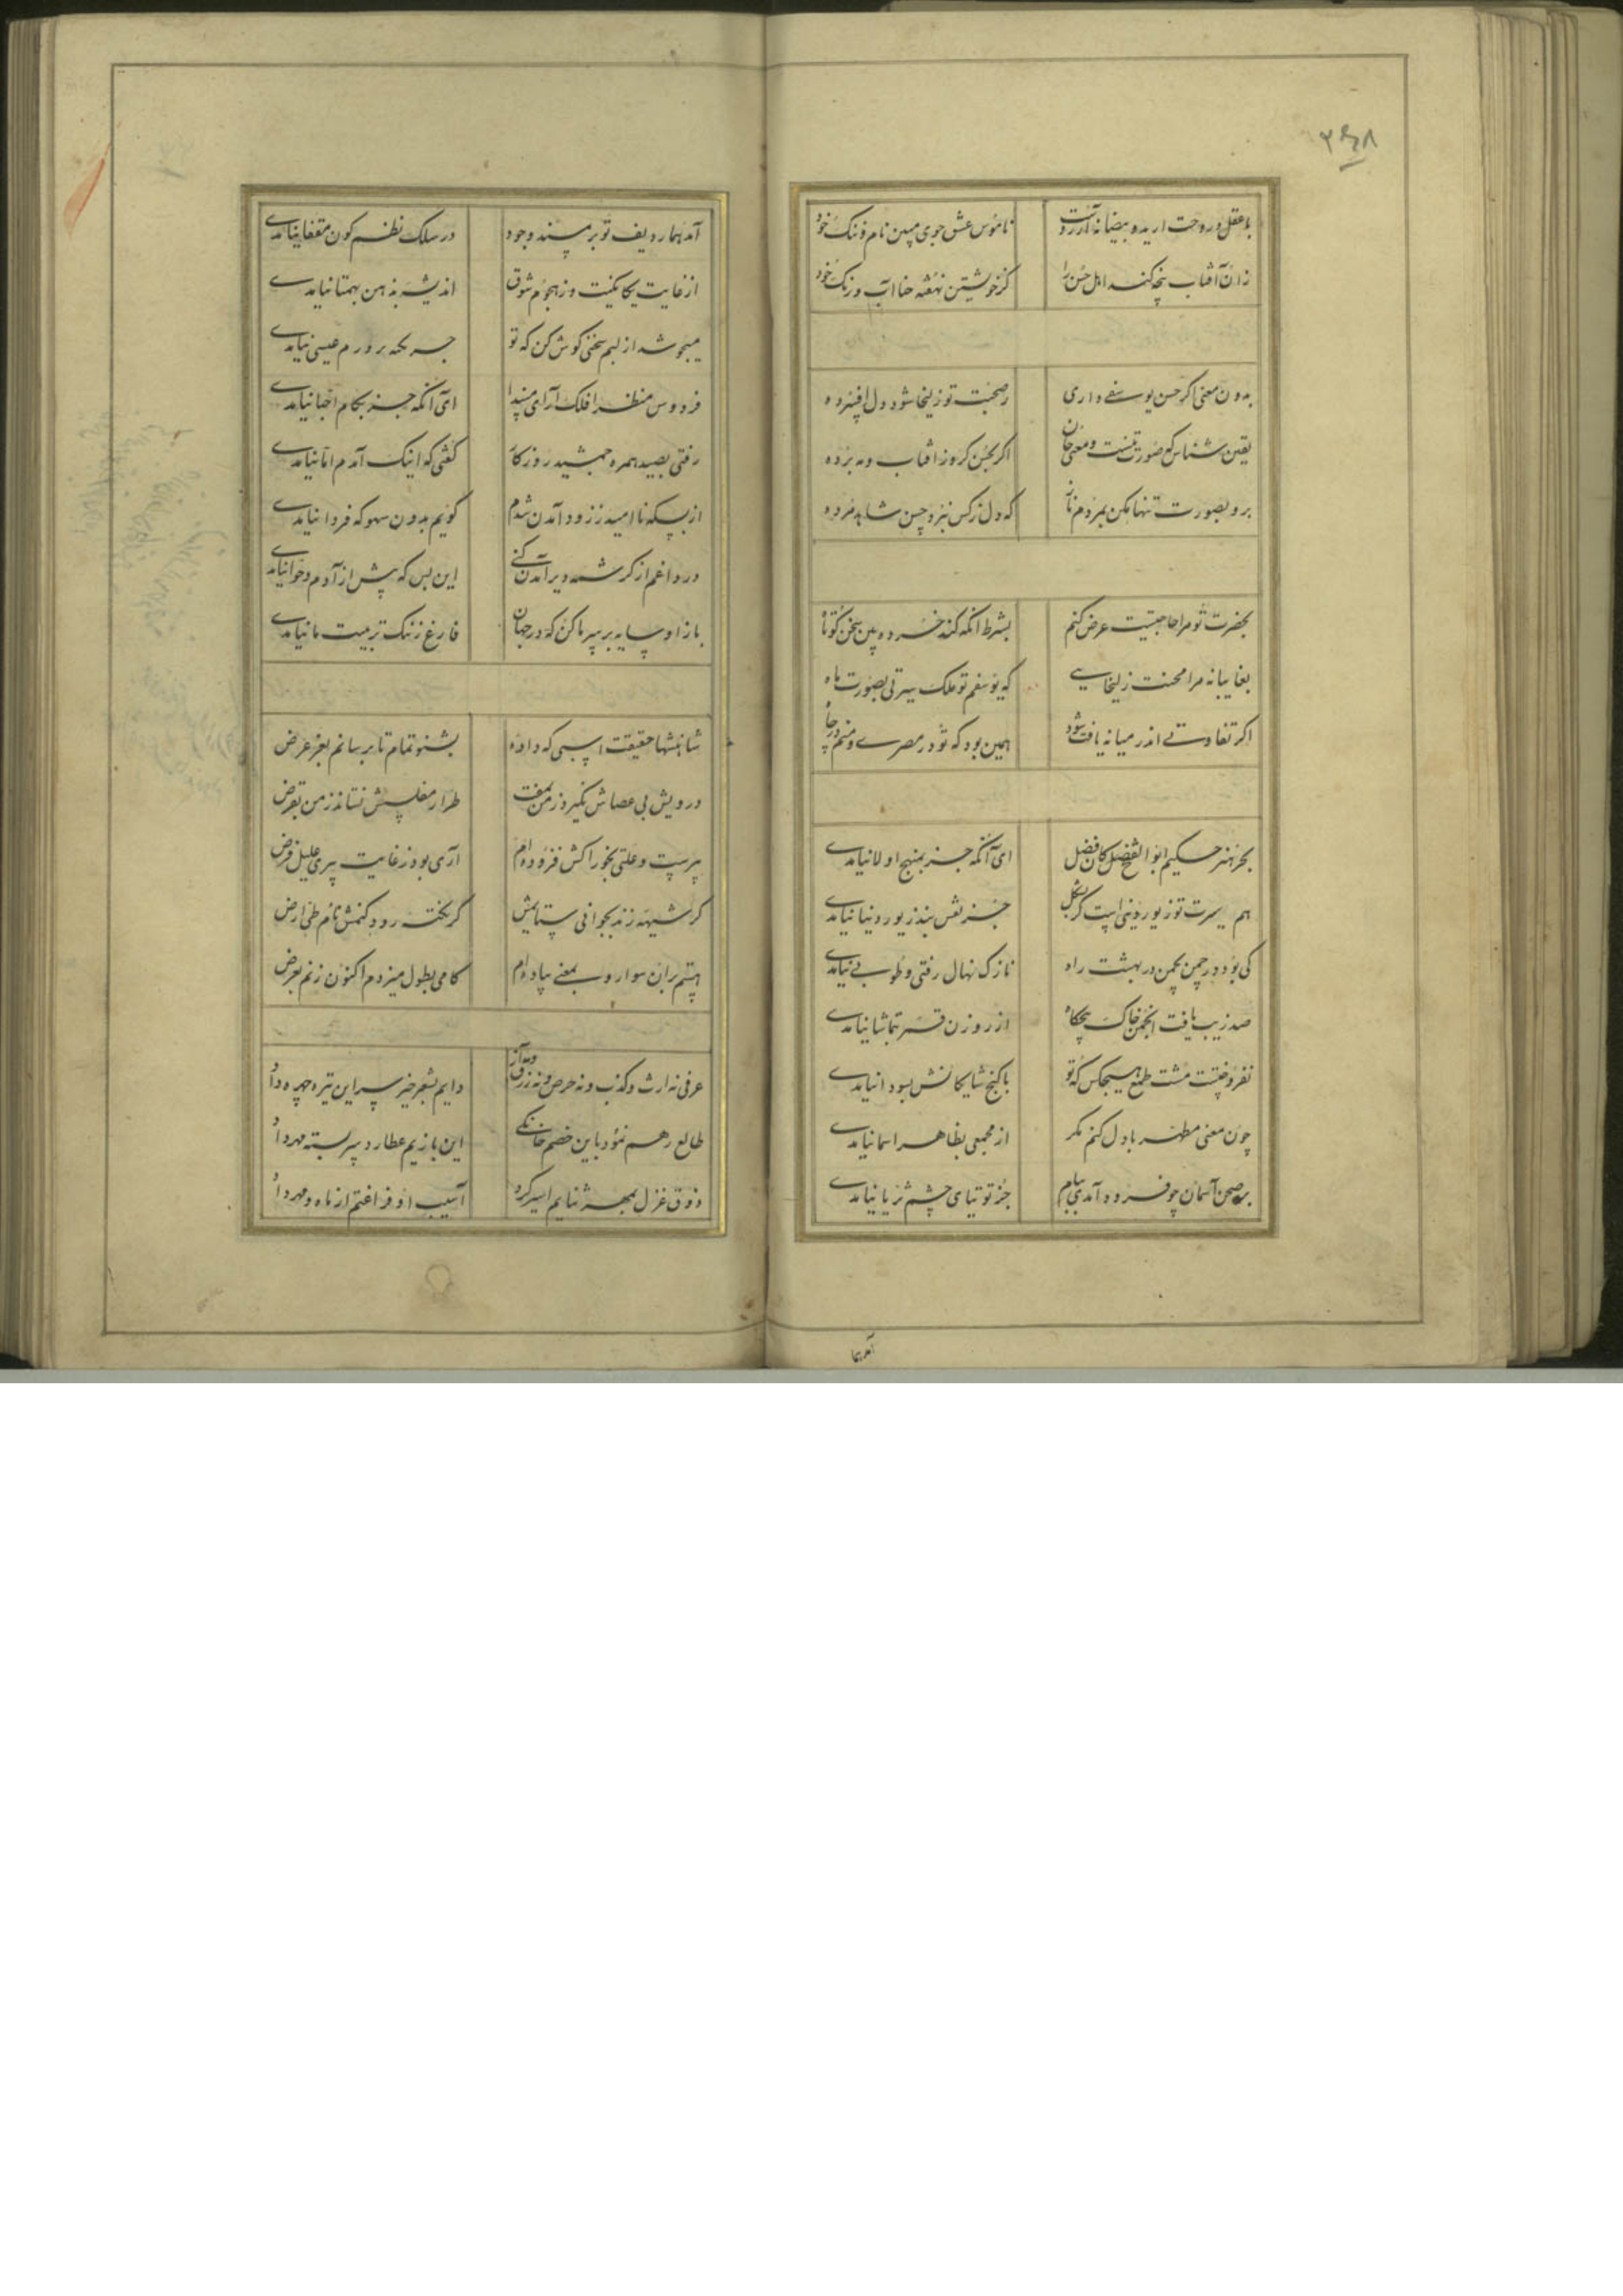 ۳۶۸
با عقل و روحت ار ید و بیضا نه آرزوست ناموس عشق جوی مبین نام و ننگ خود
زان آفتاب پنجه کند اهل حسن را کز خویشتن نهفته حنا آب و رنگ خود
بدون معنی اگر حسن یوسفی داری ز صحبت تو زلیخا شود دل افسرده
یقین شناس که صورت تنست و معنی جان اگر بحسن گرو ز آفتاب و مه برده
برو بصورت تنها مکن بمردم ناز که دل ز کس نبرد حسن شاهد مرده
بحضرت تو مرا حاجتیست عرض کنم بشرط آنکه کند خرده بین سخن کوتاه
بغایبانه مرا محنت زلیخایی که یوسفم تو ملک سیرتی بصورت ماه
اگر تفاوتی اندر میانه یافت شود همین بود که تو در مصری و منم در چاه
بحر هنر حکیم ابوالفتح کان فضل ای آنکه جز بمنهج اولا نیامدی
هم سیرت تو زیور دینی است گر بشکل جز نقش بند زیور دنیا نیامدی
کی بود در چمن بچمن در بهشت راه نازک نهال رفتی و طوبی نیامدی
صد زیب یافت انجمن خاک هیچگاه از روزن قمر بتماشا نیامدی
نفروخت مشت طمع هیچکس که تو با گنج شایگانش بسودا نیامدی
چون معنی مطهر با دل کنم مگر از مجمعی بظاهر اسما نیامدی
بر صحن آسمان چو فرود آمدی ببام جز توتیای چشم ثریا نیامدی
آمد هما
آمد هما ردیف تو بر مسند وجود در سلک نظم کون مقفا نیامدی
از غایت یگانگیت وز هجوم شوق اندیشه بذهن بهمتا نیامدی
میجوشد از لبم سخنی گوش کن که تو جز بخه بر در م عیسی نیامدی
فردوس منظرا فلک آرای مسندا ای آنکه جز بکام احبا نیامدی
رفتی بصید همره جمشید روزگار گفتی که اینک آمدم اما نیامدی
از بسکه ناامید ز زود آمدن شدم گویم بدون سهو که فردا نیامدی
در داغم از کرشمه دیر آمدن کنی این بس که پیش از آدم و حوا نیامدی
باز او سایه بر سر ما کن که در جهان فارغ ز ننگ تربیت ما نیامدی
شاهنشها حقیقت اسپی که داده بشنو تمام تا برسانم بعز عرض
درویش بی عصاش نگیرد ز من بمفت طرار مفلسش نستاند ز من بقرض
پیرست و علتی بخوراکش فزوده ام آری بود ز غایت پیری علیل فرض
گر شیهه زند بجوانی ستایمش گر یکقدم رود کنمش نام طی ارض
هستم بران سوار و بمعنی پیاده ام گامی بطول میزدم اکنون زنم بعرض
عرفی نه ارث و کذب و نه حرص و نه زرق و نه آز دایم بشعر خیز سر این تیره چهره دا
طالع رهم نمود باین خصم خانگی این بازیم عطارد سربسته مهر داد
ذوق غزل بمهر ثنایم اسیر کرد آسیب او فراغتم از ماه و مهر داد